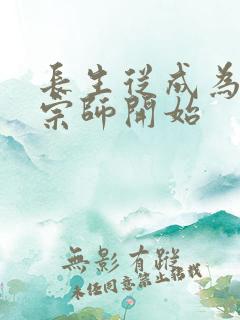 長生從成為
宗師開始
無影有蹤
未經同意禁止搭載